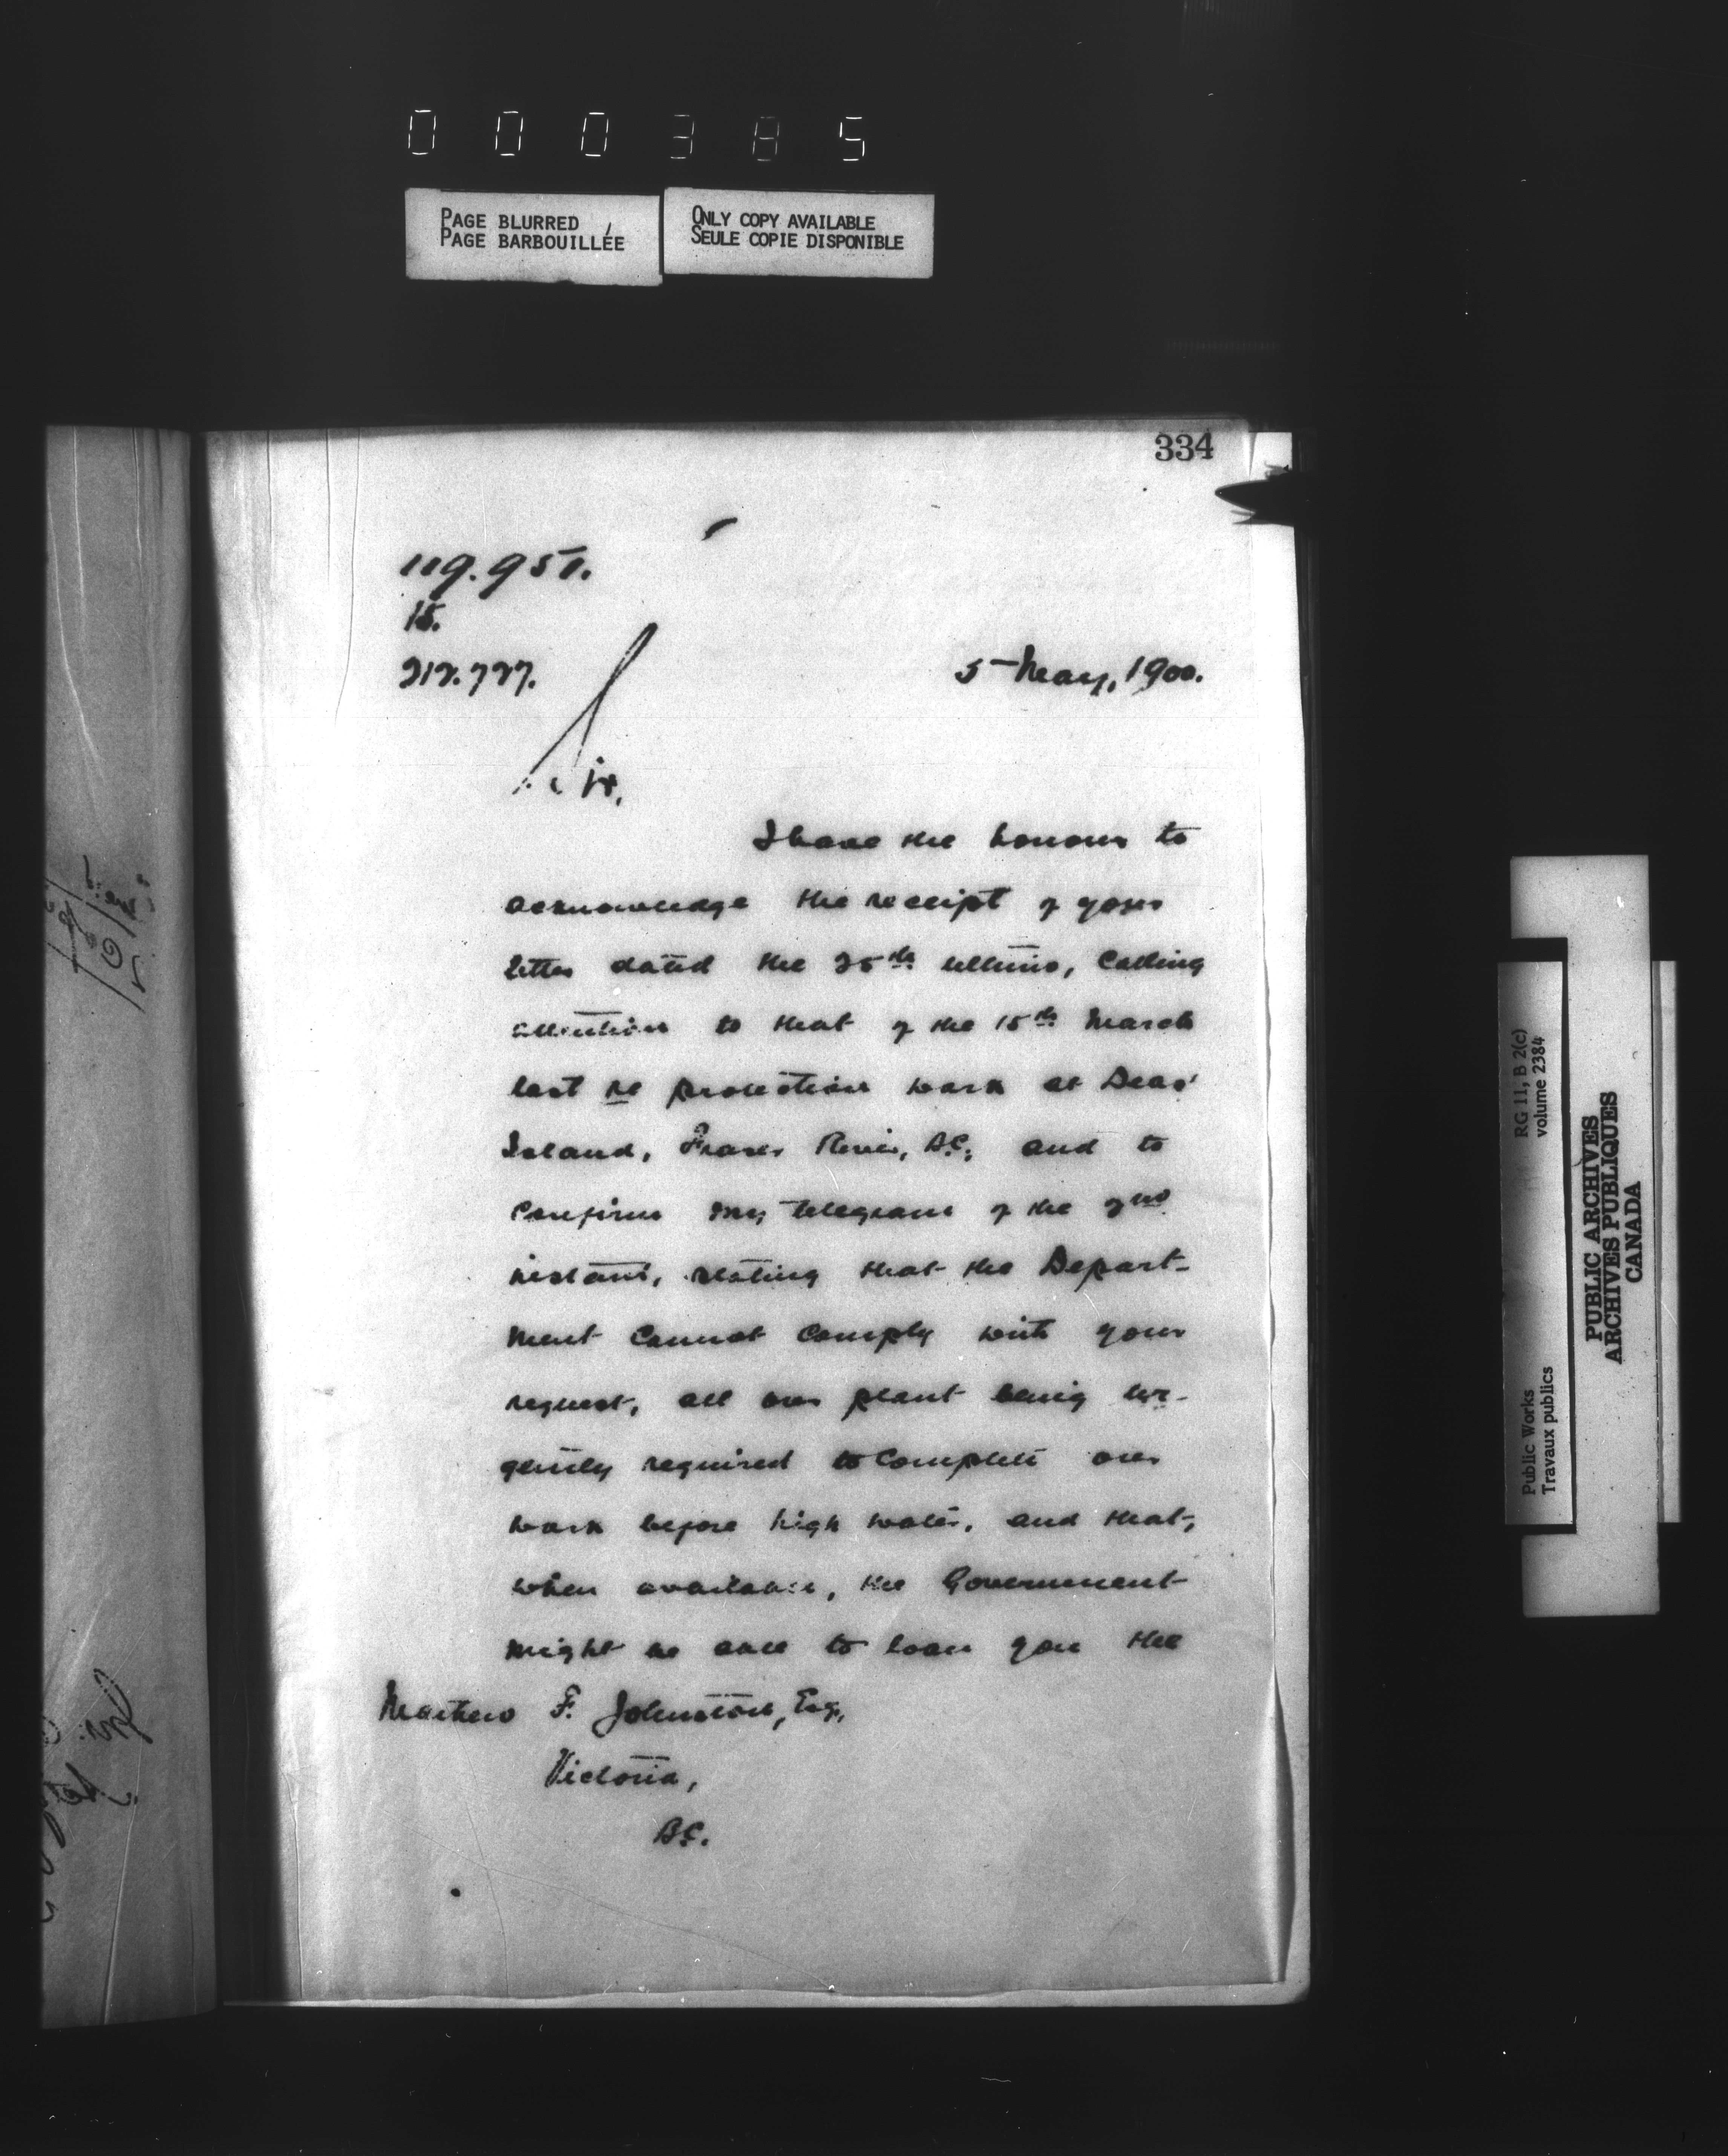 000385
PAGE BLURRED
PAGE BARBOUILLÉE
ONLY COPY AVAILABLE
SEULE COPIE DISPONIBLE
334
119.951.
15.
212.727.
5 May, 1900.
Sir,
I have the honour to
acknowledge the receipt of your
letter dated the 25th ultimo, calling
attention to that of the 15th March
last re protection work at Deas'
Island, Fraser River, B.C., and to
confirm my telegram of the 2nd
instant, stating that the Depart-
ment cannot comply with your
request, all our plant being ur-
gently required to complete our
work before high water, and that,
when available, the Government
might be able to loan you the
Mathew F. Johnston, Esq,
Victoria,
B.C.
RG 11, B 2(c)
volume 2384
Public Works
Travaux publics
PUBLIC ARCHIVES
ARCHIVES PUBLIQUES
CANADA